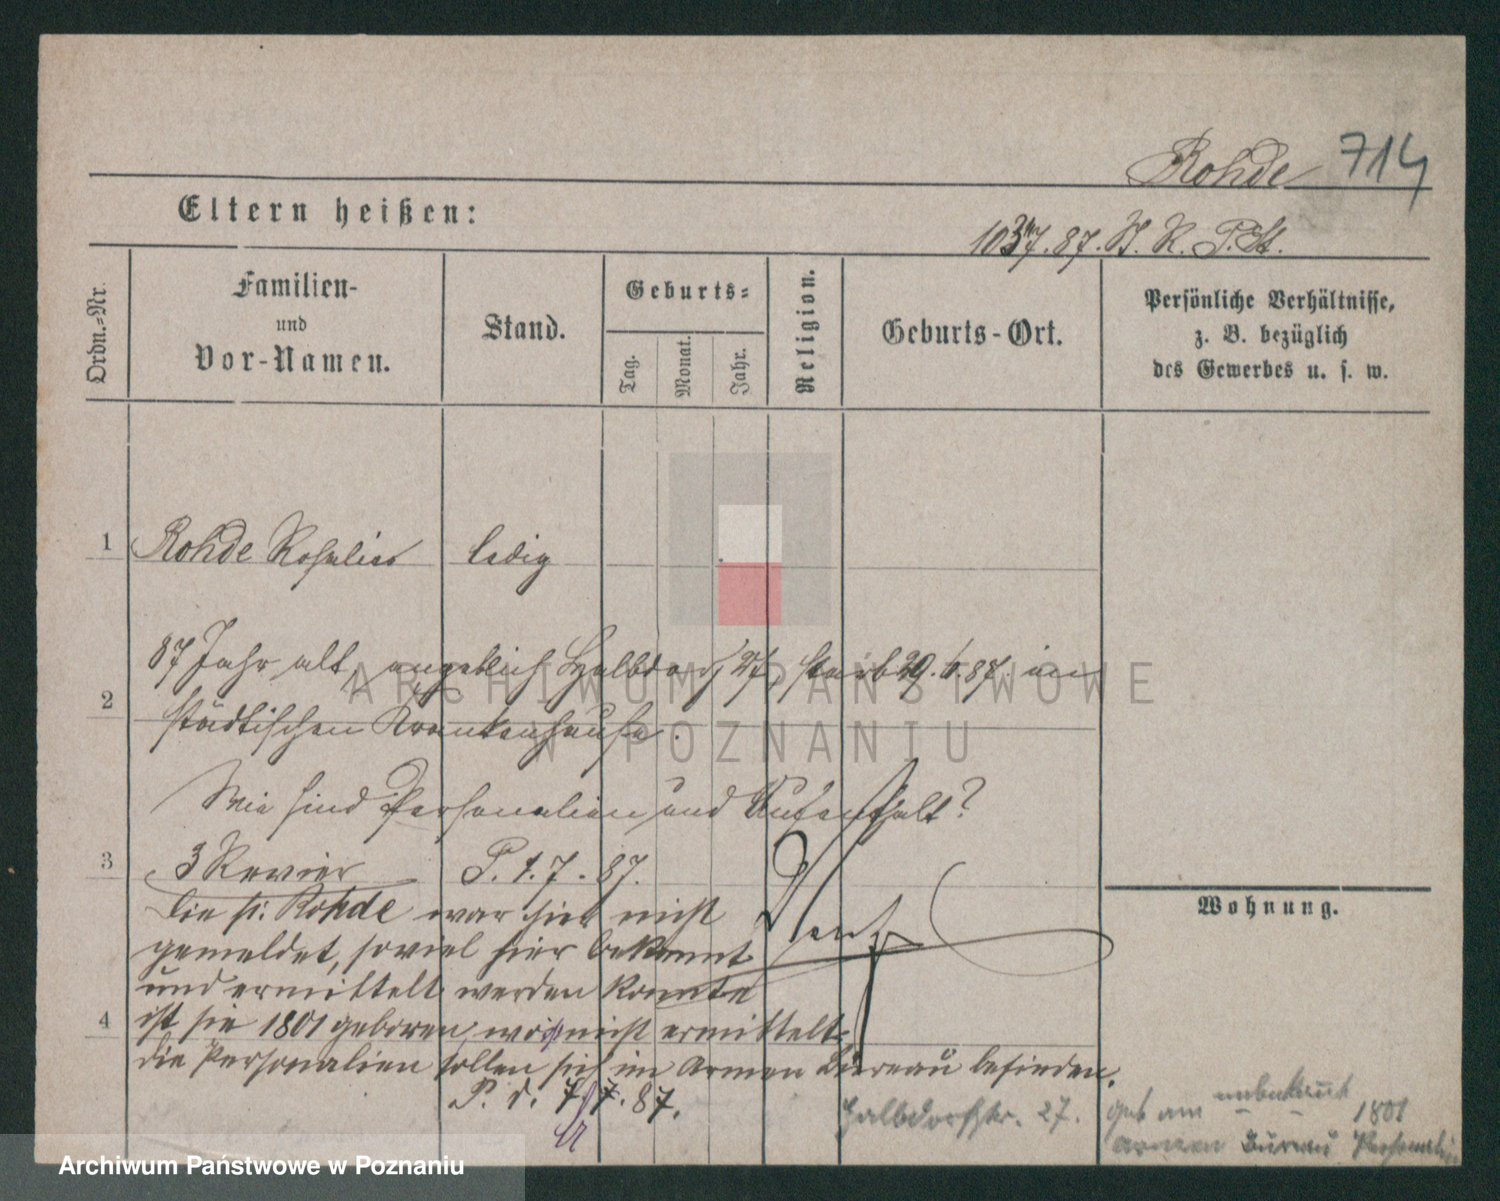 Rohde 714
Eltern heißen:
1037.87. P. St.
Ordn.-Nr.
Familien-
und
Vor-Namen.
Stand.
Geburts-
Tag.
Monat.
Jahr.
Religion.
Geburts-Ort.
Persönliche Verhältnisse,
z. B. bezüglich
des Gewerbes u. s. w.
1 Rohde Rosalie ledig
87 Jahr alt, angeblich Halbdorf 27, starb 29.6.87. im
2
städtischen Krankenhause.
Wie sind Personalien und Aufenthalt?
3
3 Revier P. 1.7.87.
Die p: Rohde war hier nicht
gemeldet, soviel hier bekannt
und ermittelt werden konnte
4
ist sie 1801 geboren, wo nicht ermittelt
die Personalien sollen sich im Armen Bureau befinden.
P. d. 7.7.87.
Wohnung.
Halbdorfstr. 27.
geb am unbekannt 1801
Armen Bureau Personalien
ARCHIWUM PAŃSTWOWE
W POZNANIU
Archiwum Państwowe w Poznaniu